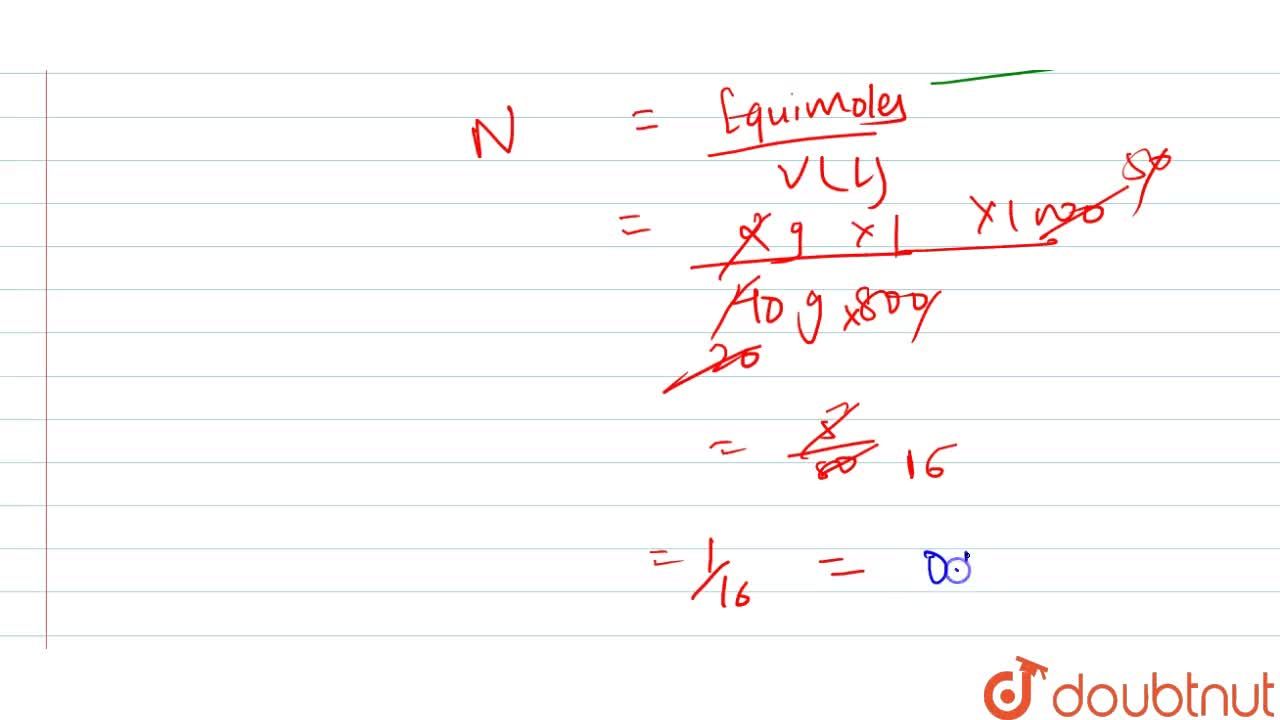 N = Equimoles
V(L)
= 2 g × 1 × 1000 50
40 g × 800
20
= 5
80 16
= 1/16 = 0.
doubtnut